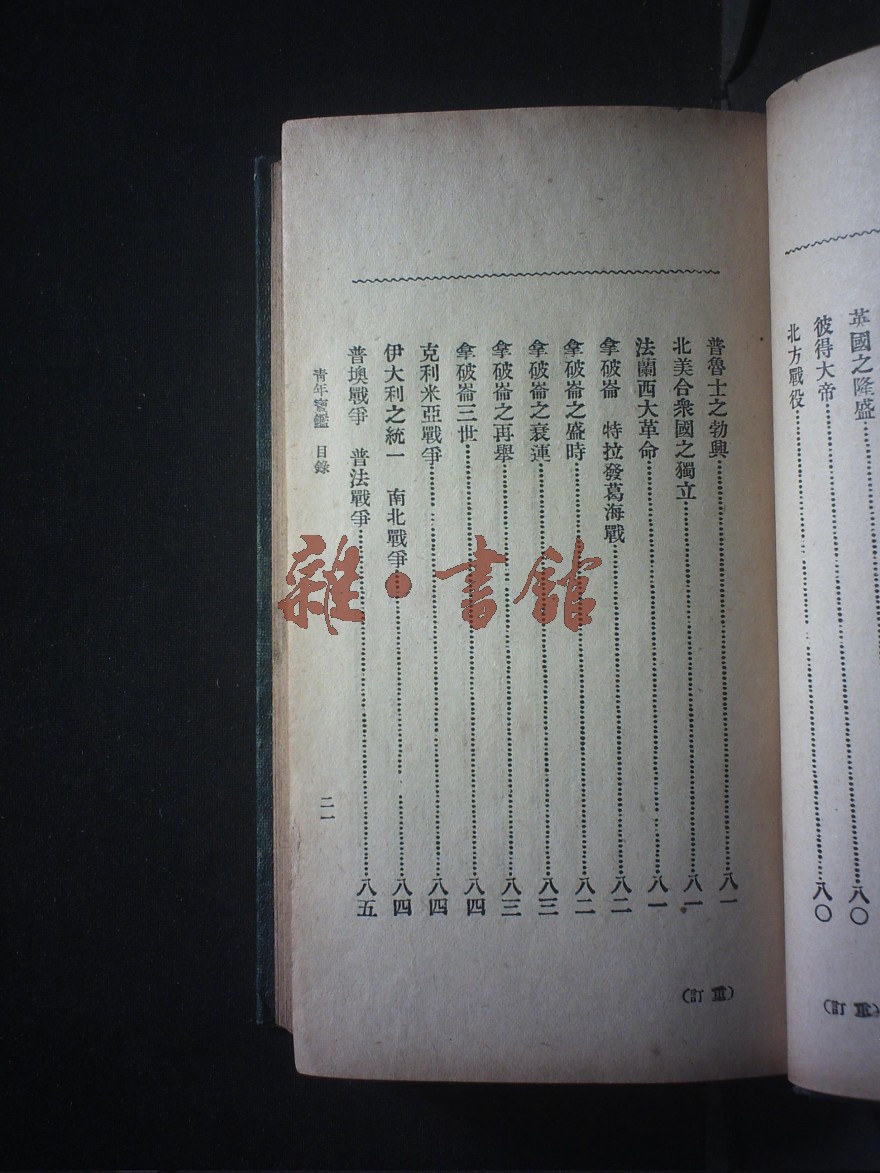 英國之隆盛……八〇
彼得大帝……八〇
北方戰役……八〇
(重訂)
普魯士之勃興……八一
北美合衆國之獨立……八一
法蘭西大革命……八一
拿破崙　特拉發葛海戰……八二
拿破崙之盛時……八二
拿破崙之衰連……八三
拿破崙之再舉……八三
拿破崙三世……八四
克利米亞戰爭……八四
伊大利之統一　南北戰爭……八四
普墺戰爭　普法戰爭……八五
青年寶鑑　目錄
二一
(重訂)
雜·書館